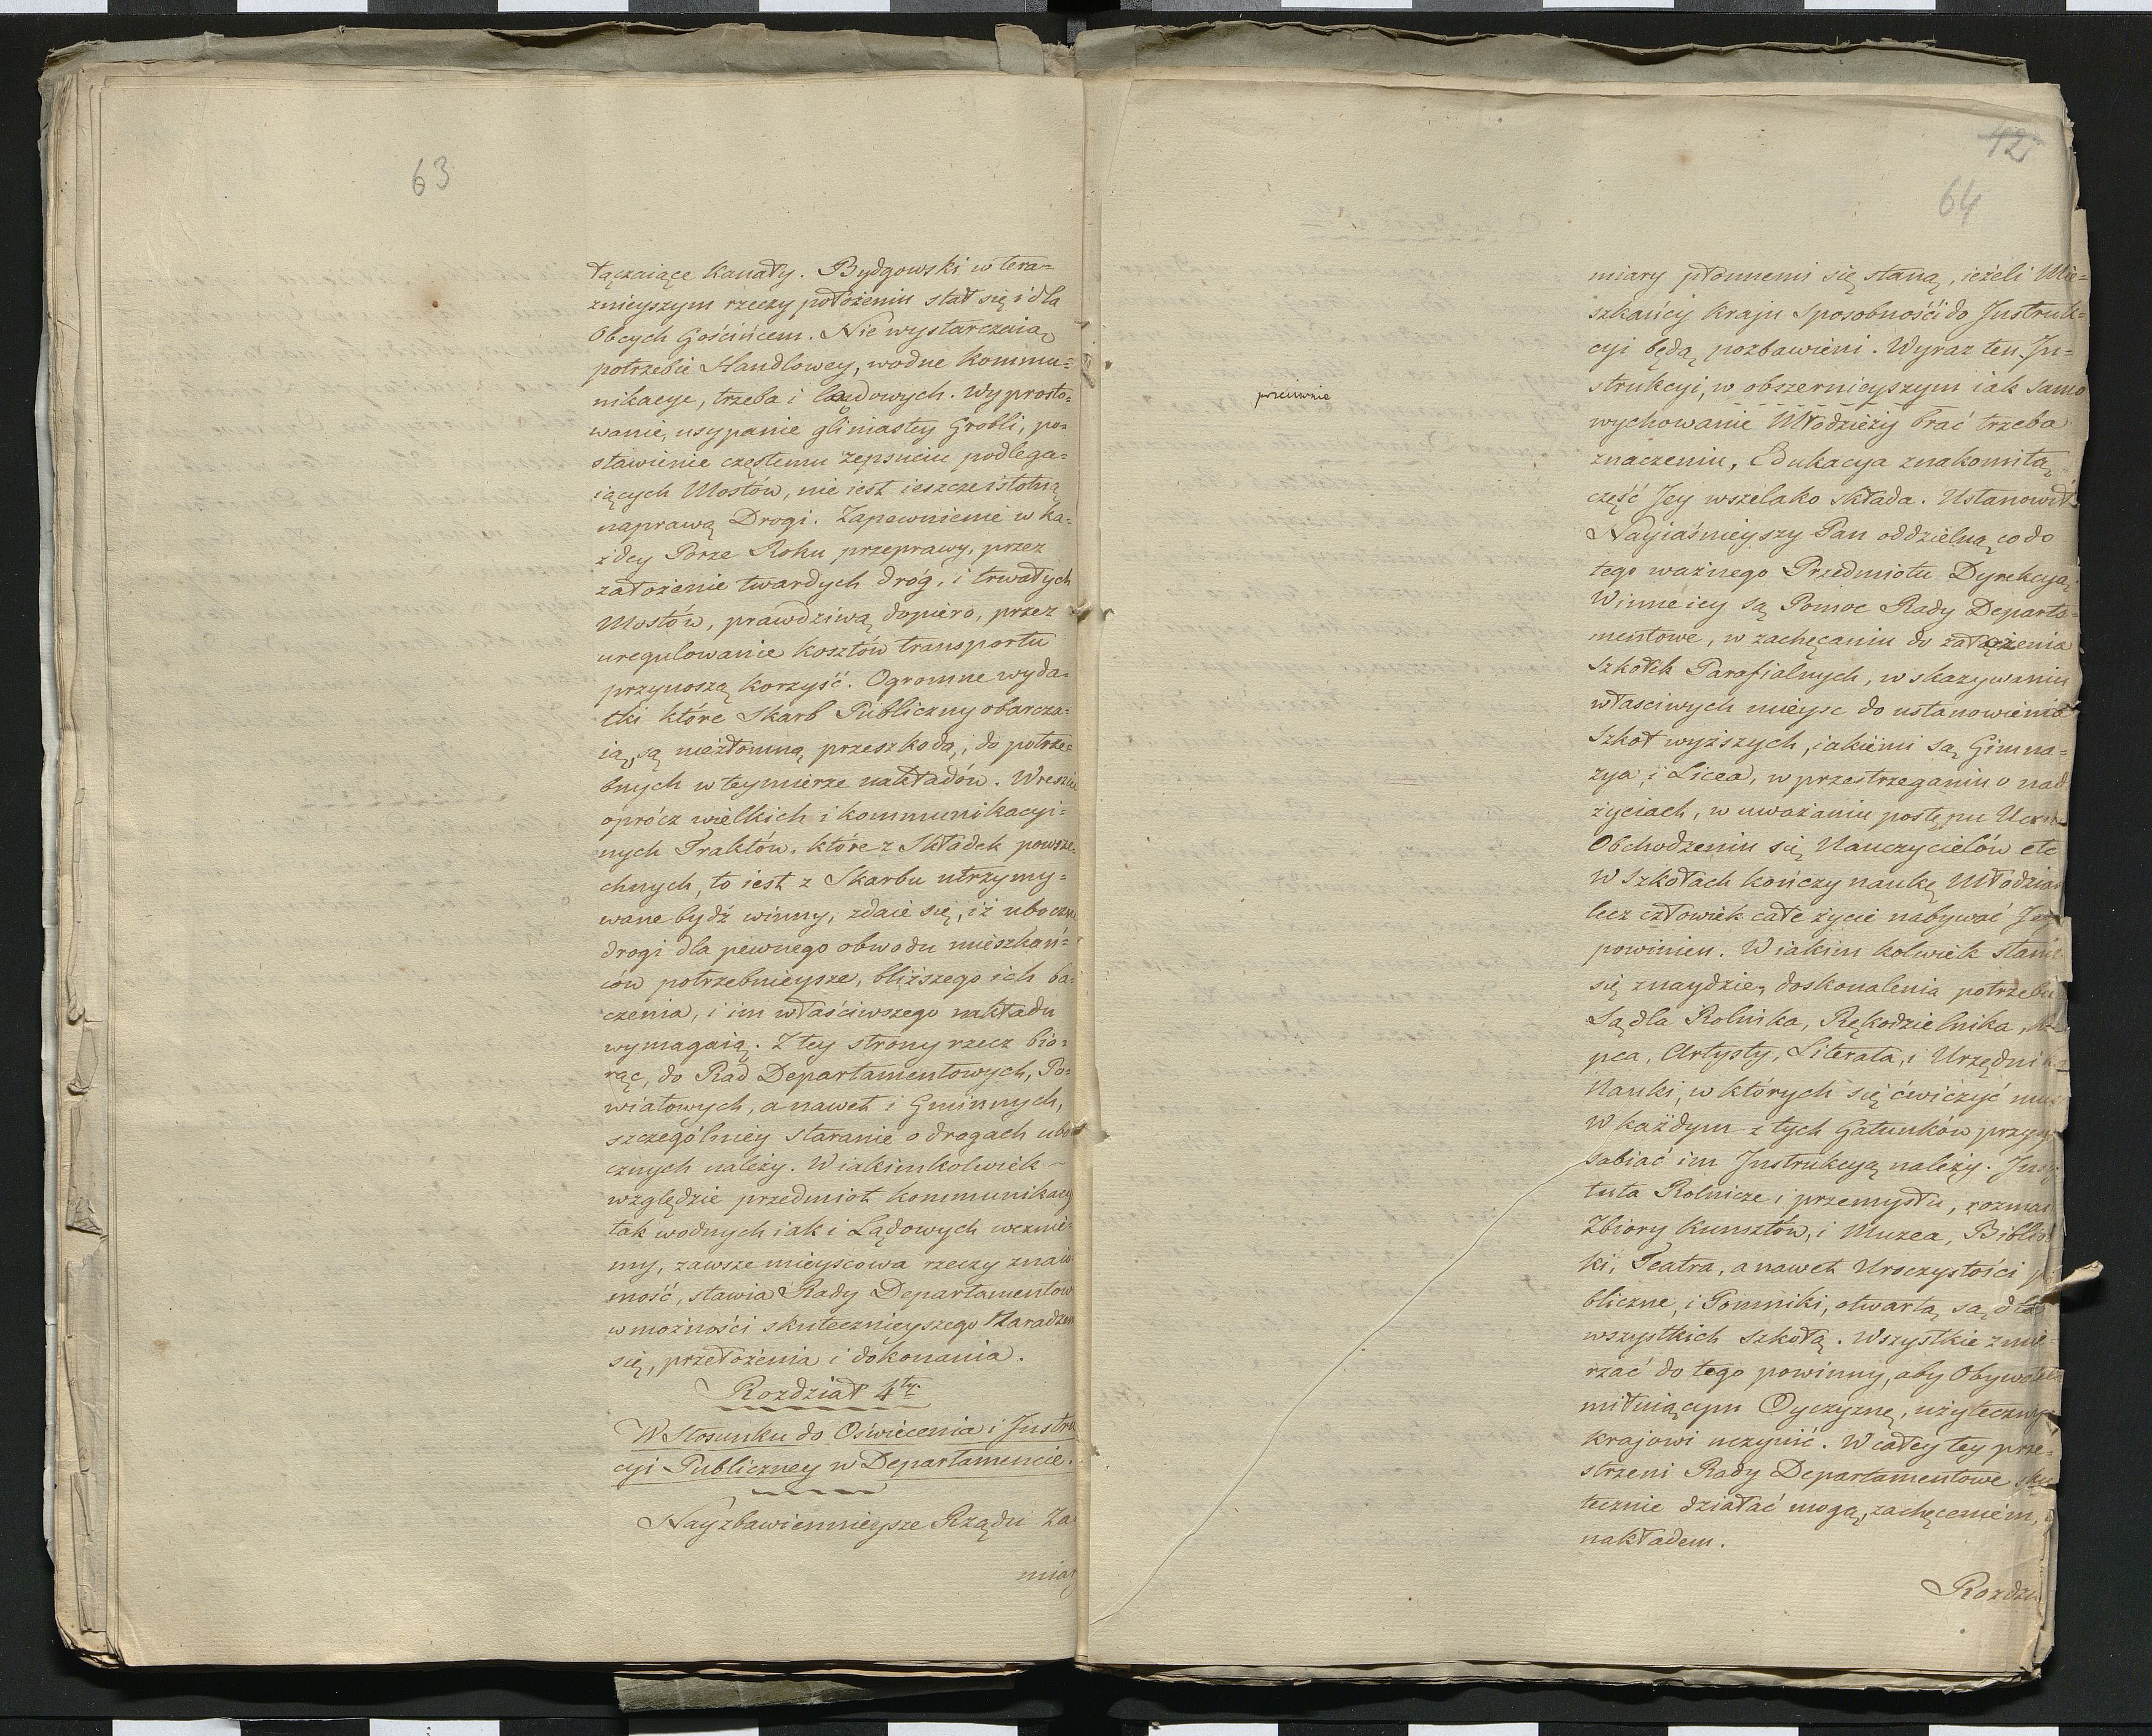 63
łączaiące Kanały. Bydgowski w tera=
znieyszym rzeczy położeniu stał się i dla
Obcych Gościńcem. Nie wystarczaią
potrzebie Handlowey, wodne Kommu=
nikacye, trzeba i lądowych. Wyprosto=
wanie, usypanie gliniastey Grobli, po=
stawienie częstemu zepsuciu podlega=
iących Mostów, nie iest ieszcze istotną
naprawą Drogi. Zapewnienie w ka=
żdey Porze Roku przeprawy, przez
założenie twardych dróg, i trwałych
Mostów, prawdziwą dopiero, przez
uregulowanie kosztów transportu
przynoszą korzyść. Ogromne wyda=
tki które Skarb Publiczny obarcza=
ią, są niezłomną przeszkodą, do potrze=
bnych w teymierze nakładów. Wreszcie
oprócz wielkich i kommunikacyi=
nych Traktów, które z Składek powsze=
chnych, to iest z Skarbu utrzymy=
wane bydź winny, zdaie się, iż uboczne
drogi dla pewnego obwodu mieszkań=
ców potrzebnieysze, bliższego ich ba=
czenia, i im właściwszego nakładu
wymagaią. Z tey strony rzecz bio=
rąc, do Rad Departamentowych, Po=
wiatowych, a nawet i Gminnych,
szczególniey staranie o drogach ubo
cznych należy. W iakimkolwiek
względzie przedmiot kommunikacy
tak wodnych iak i Lądowych weźmie=
my, zawsze mieyscowa rzeczy znaio
mość, stawia Rady Departamentow
w możności skutecznieyszego Naradzen
się, przełożenia i dokonania.
Rozdział 4ty.
W Stosunku do Oświecenia i Instru
cyi Publiczney w Departamencie.
Nayzbawiennieysze Rządu Za
miar
42
64
przeciwnie
miary płonnemi się staną, ieżeli Mie=
szkańcy Kraju Sposobności do Instruk=
cyi będą pozbawieni. Wyraz ten In=
strukcyi, w obszernieyszym iak samo
wychowanie Młodzieży brać trzeba
znaczeniu, Edukacya znakomitą
część Jey wszelako składa. Ustanowił
Nayiaśnieyszy Pan oddzielną co do
tego ważnego Przedmiotu Dyrekcyą.
Winne iey są Pomoc Rady Departa=
mentowe, w zachęcaniu do założenia
Szkółek Parafialnych, w skazywaniu
własciwych mieysc do ustanowienia
Szkół wyższych, iakiemi są Gimna=
zya, i Licea, w przestrzeganiu o nad
życiach, w uważaniu postępu Uczni
Obchodzeniu się Nauczycielów etc
W Szkołach kończy naukę Młodzian
lecz człowiek całe życie nabywać Jey
powinien. W iakim kolwiek stanie
się znaydzie, doskonalenia potrzebu
Są dla Rolnika, Rękodzielnika, Ku
pca, Artysty, Literata, i Urzędnika
Nauki, w których się ćwiczyć mus
W każdym z tych Gatunków przyspo
sabiać im Instrukcyą należy. Insty
tuta Rolnicze i przemysłu, rozmai
Zbiory Kunsztów, i Muzea, Biblio
ki, Teatra, a nawet Uroczystości pu
bliczne, i Pomniki, otwartą są dla
wszystkich szkołą. Wszystkie zmie=
rzać do tego powinny, aby Obywatela
miłuiącym Oyczyznę, użytecznym
krajowi uczynić. W całey tey prze=
strzeni Rady Departamentowe sku
tecznie działać mogą, zachęceniem,
nakładem.
Rozdzi